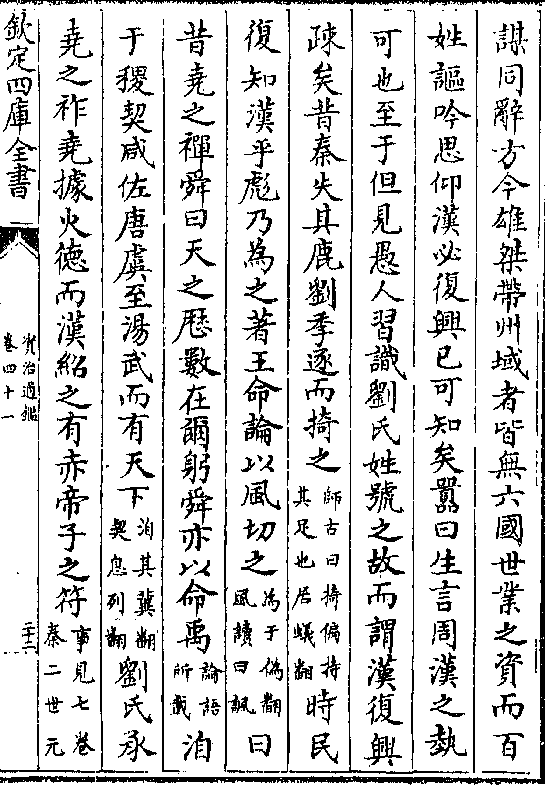 謀同辭方今雄桀帶州域者皆無六國世業之資而百
姓謳吟思仰漢必復興已可知矣囂曰生言周漢之埶
可也至于但見愚人習識劉氏姓號之故而謂漢復興
疎矣昔秦失其鹿劉季逐而掎之師古曰掎偏持其足也居蟻翻時民
復知漢乎彪乃為之著王命論以風切之為于偽翻風讀曰諷曰
昔堯之禪舜曰天之厯數在爾躬舜亦以命禹論語所載洎
于稷契咸佐唐虞至湯武而有天下洎其冀翻契息列翻劉氏承
堯之祚堯據火德而漢紹之有赤帝子之符事見七卷秦二世元
欽定四庫全書
資治通鑑
卷四十一
二十二